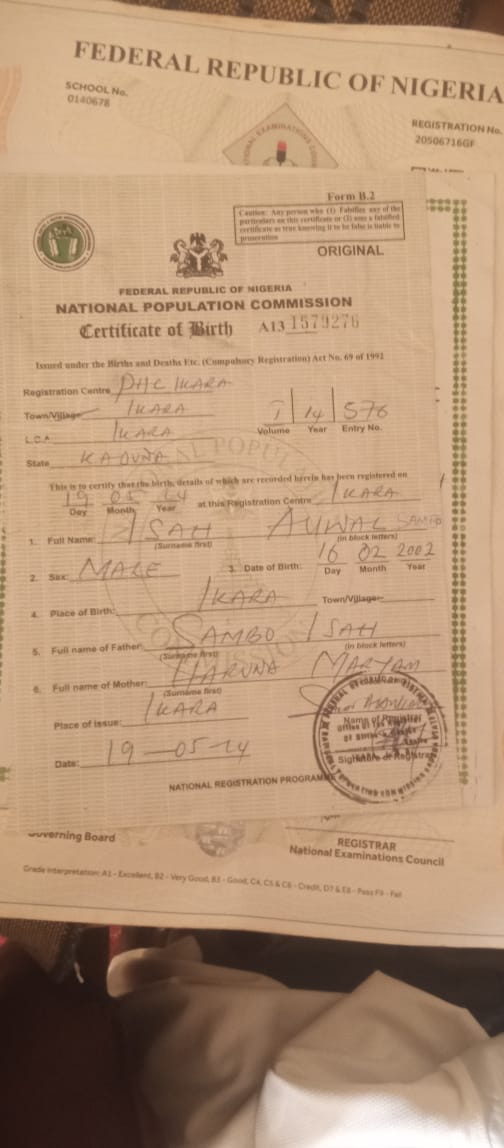 FEDERAL REPUBLIC OF NIGERIA
SCHOOL No.
0140678
REGISTRATION No.
20506716GF
Form B.2
Caution: Any person who (1) Falsifies any of the
particulars on this certificate or (2) uses a falsified
certificate as true knowing it to be false is liable to
prosecution
ORIGINAL
FEDERAL REPUBLIC OF NIGERIA
NATIONAL POPULATION COMMISSION
Certificate of Birth A13 1579276
Issued under the Births and Deaths Etc. (Compulsory Registration) Act No. 69 of 1992
Registration Centre PHC IKARA
Town/Village IKARA
1 14 576
Volume Year Entry No.
L.G.A. IKARA
State KADUNA
This is to certify that the birth, details of which are recorded herein has been registered on
19 05 14 at this Registration Centre IKARA
Day Month Year
1. Full Name: ISAH AUWAL SAMBO
(Surname first) (in block letters)
2. Sex: MALE 3. Date of Birth: 16 02 2002
Day Month Year
4. Place of Birth: IKARA Town/Village
5. Full name of Father: SAMBO ISAH
(Surname first) (in block letters)
6. Full name of Mother: HARUNA MARYAM
(Surname first)
Place of Issue: IKARA
Name of Registrar
Signature of Registrar
Date: 19-05-14
NATIONAL REGISTRATION PROGRAMME
Governing Board
REGISTRAR
National Examinations Council
Grade Interpretation: A1 - Excellent, B2 - Very Good, B3 - Good, C4, C5 & C6 - Credit, D7 & E8 - Pass F9 - Fail